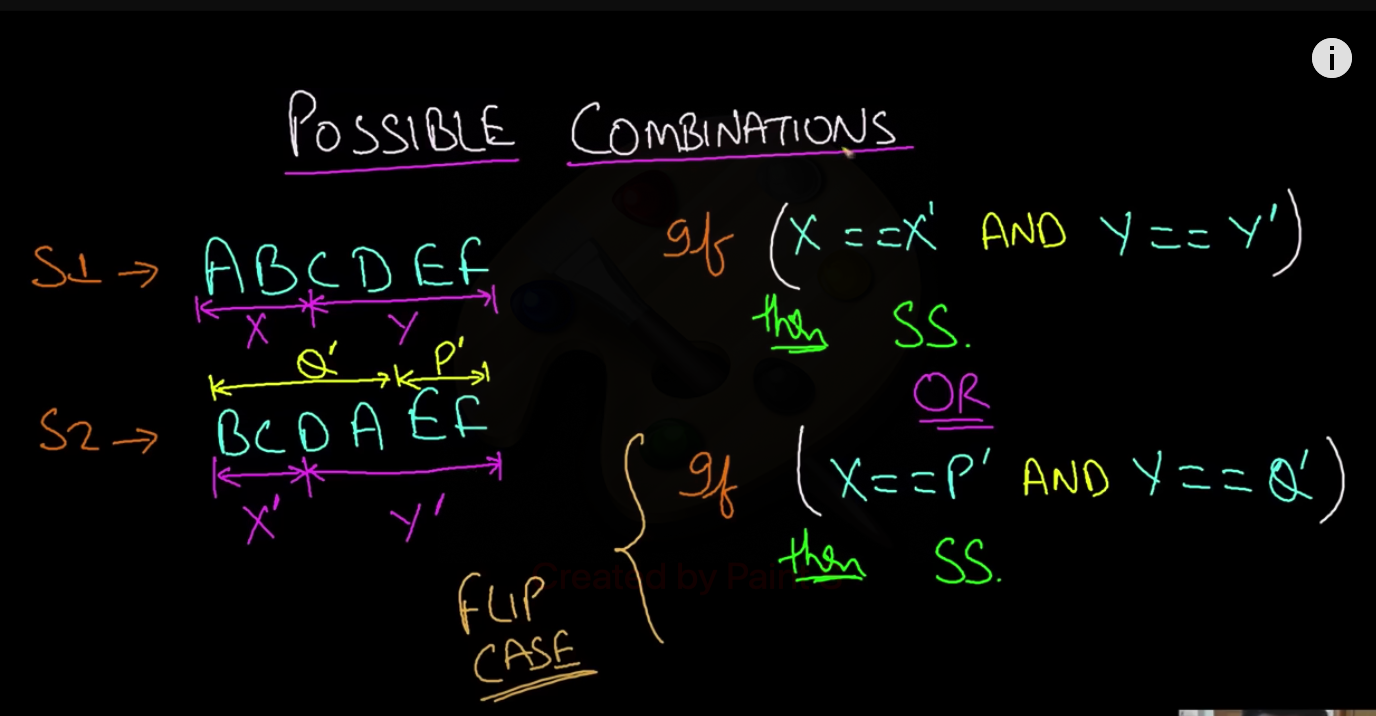 i
POSSIBLE COMBINATIONS
S1 → ABCDEF
X Y
Q' P'
S2 → BCDAEF
X' Y'
If (X ==X' AND Y == Y')
then SS.
OR
If (X==P' AND Y == Q')
then SS.
FLIP
CASE
Created by Pain